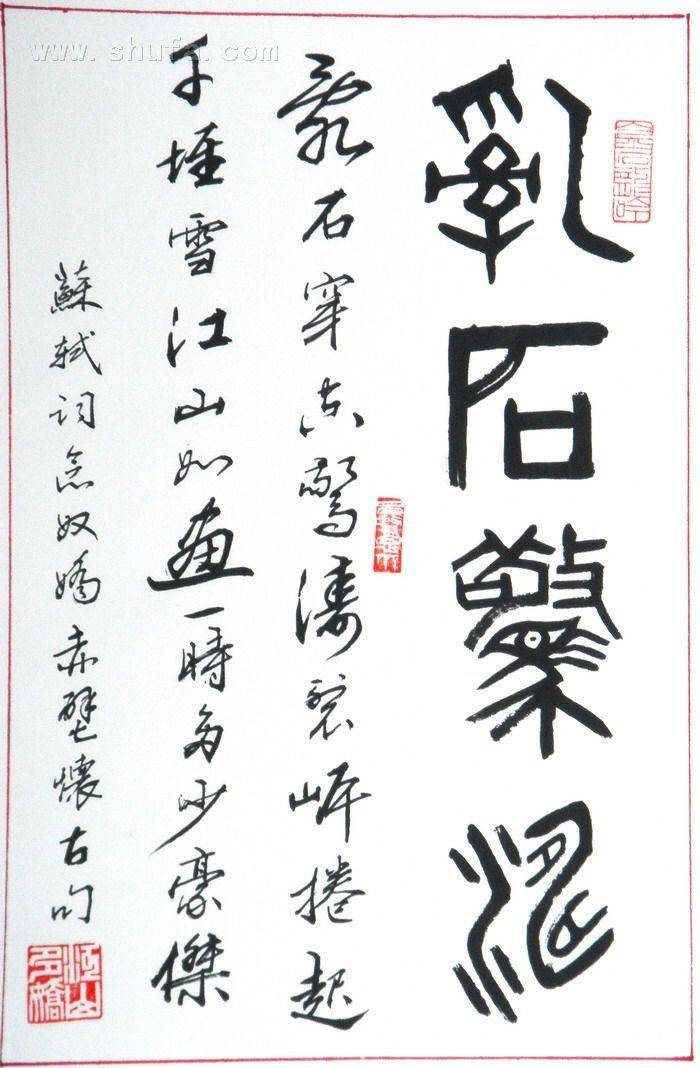 乱石驚濤
乱石穿空驚濤裂岸捲起
千堆雪江山如畫一時多少豪傑
蘇軾词念奴嬌赤壁懷古句
江山多嬌
www.shufa.com